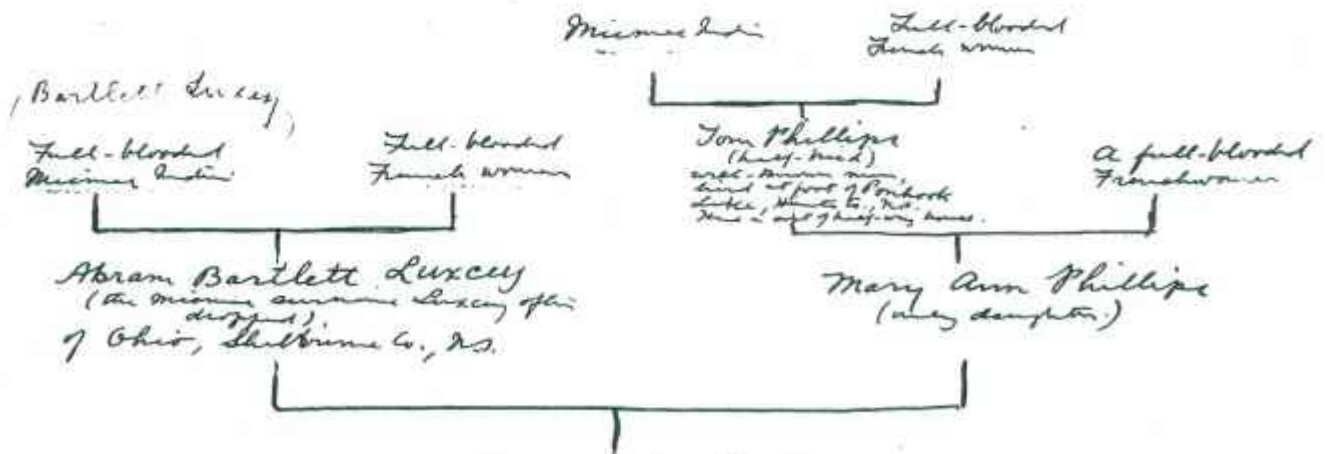 Micmac Indian
Full-blooded
French woman
(Bartlett Luxey)
Full-blooded
Micmac Indian
Full-blooded
French woman
Tom Phillips
(half-bred)
well-known man,
lived at foot of Ponhook
Lake, Hants Co., N.S.
sort of half-way house.
A full-blooded
Frenchwoman
Abram Bartlett Luxcey
(the Micmac surname Luxcey often
dropped)
of Ohio, Shelburne Co., N.S.
Mary Ann Phillips
(only daughter.)